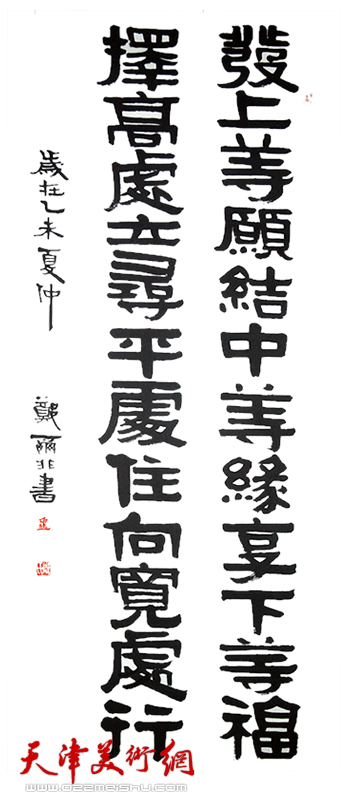 發上等願結中等緣享下等福
擇高處立尋平處住向寬處行
歲在乙未夏仲
鄭爾非書
天津美術網
www.022meishu.com